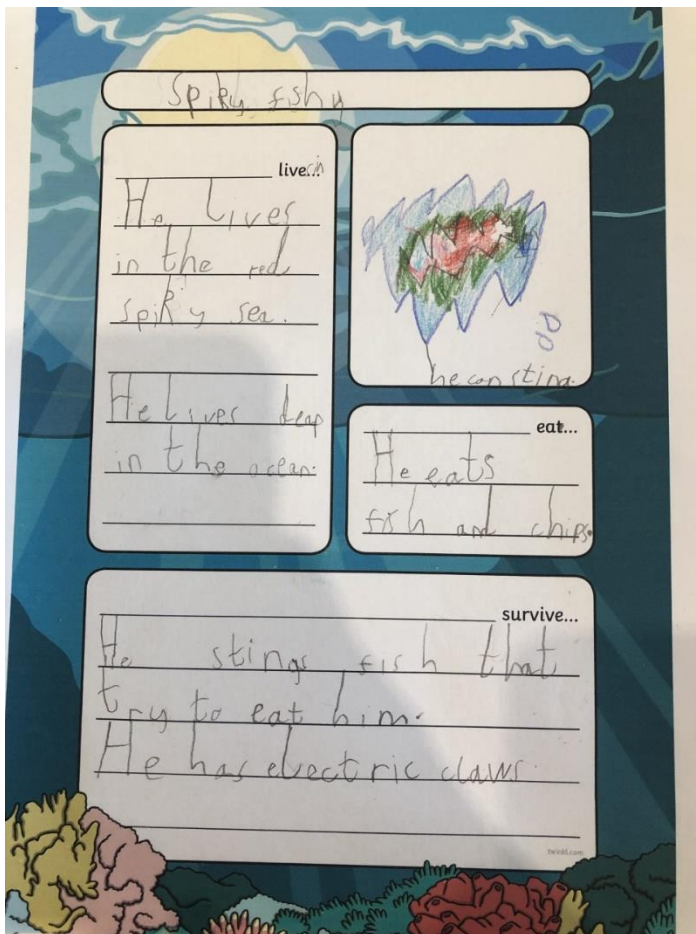 Spiky fishy
live...in
He lives
in the red
spiky sea.
He lives deap
in the ocean.
he can sting.
eat...
He eats
fish and chips.
survive...
He stings fish that
try to eat him.
He has electric claws.
twinkl.com